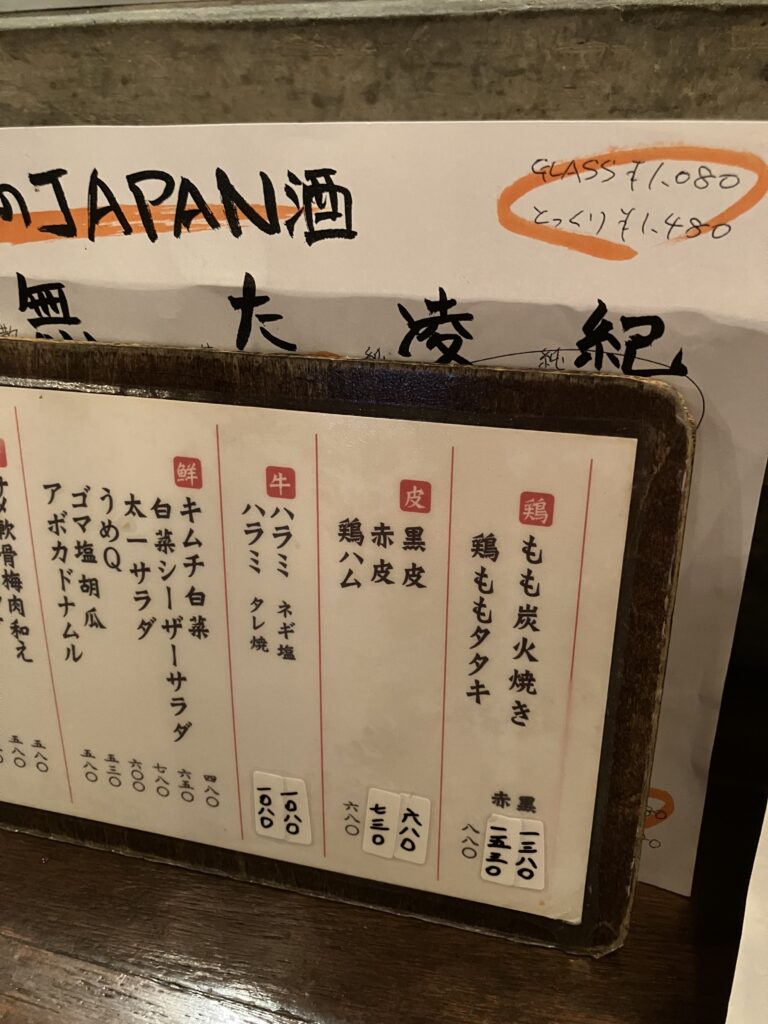 のJAPAN酒
GLASS ¥1,080
とっくり ¥1,480
無
た
凌
紀
純
純
鶏
もも炭火焼き 黒 一三八〇
赤 一五三〇
鶏ももタタキ 八八〇
皮
黒皮 六八〇
赤皮 七三〇
鶏ハム 六八〇
牛
ハラミ ネギ塩 一〇八〇
ハラミ タレ焼 一〇八〇
鮮
キムチ白菜 四八〇
白菜シーザーサラダ 六五〇
太一サラダ 七八〇
うめQ 六〇〇
ゴマ塩胡瓜 五三〇
アボカドナムル 五八〇
軟骨梅肉和え 五八〇
五八〇